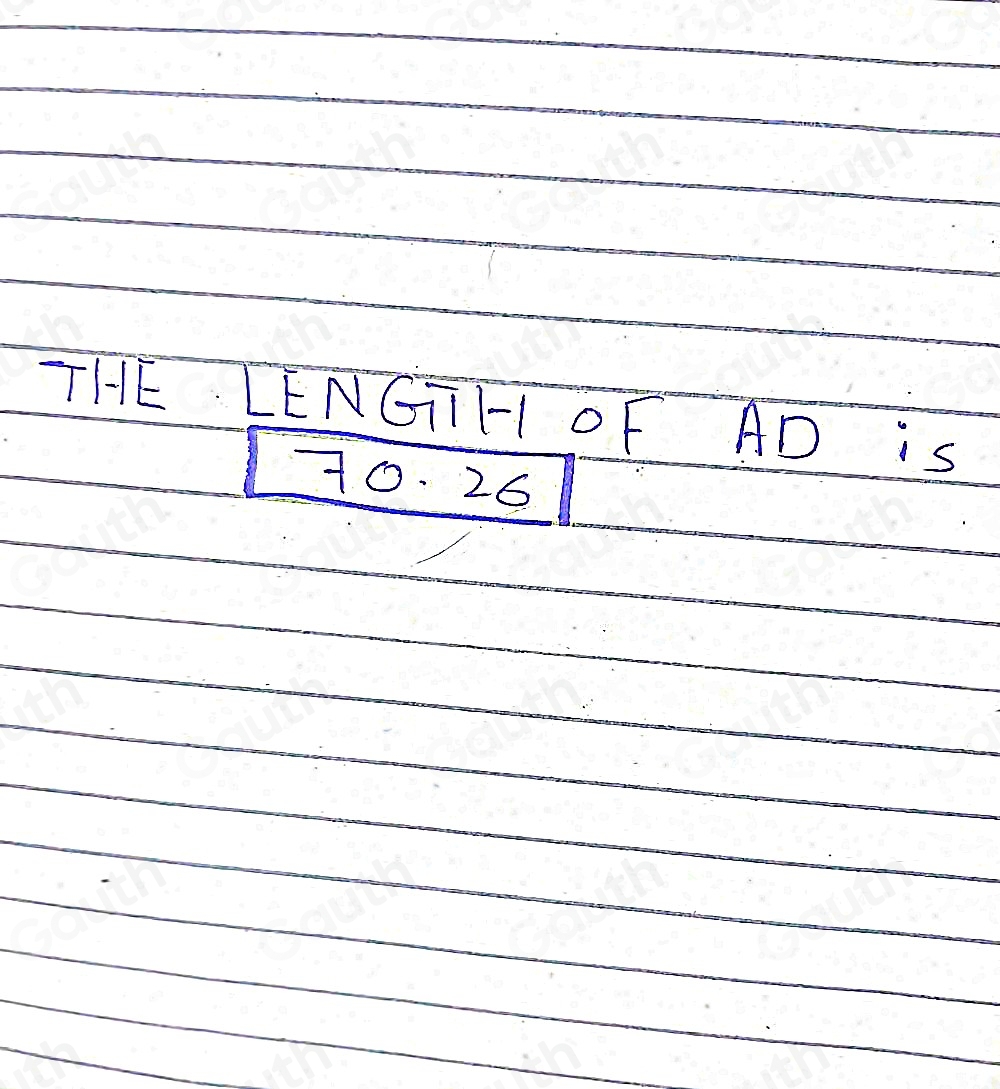 THE LENGTH OF AD is
70.26